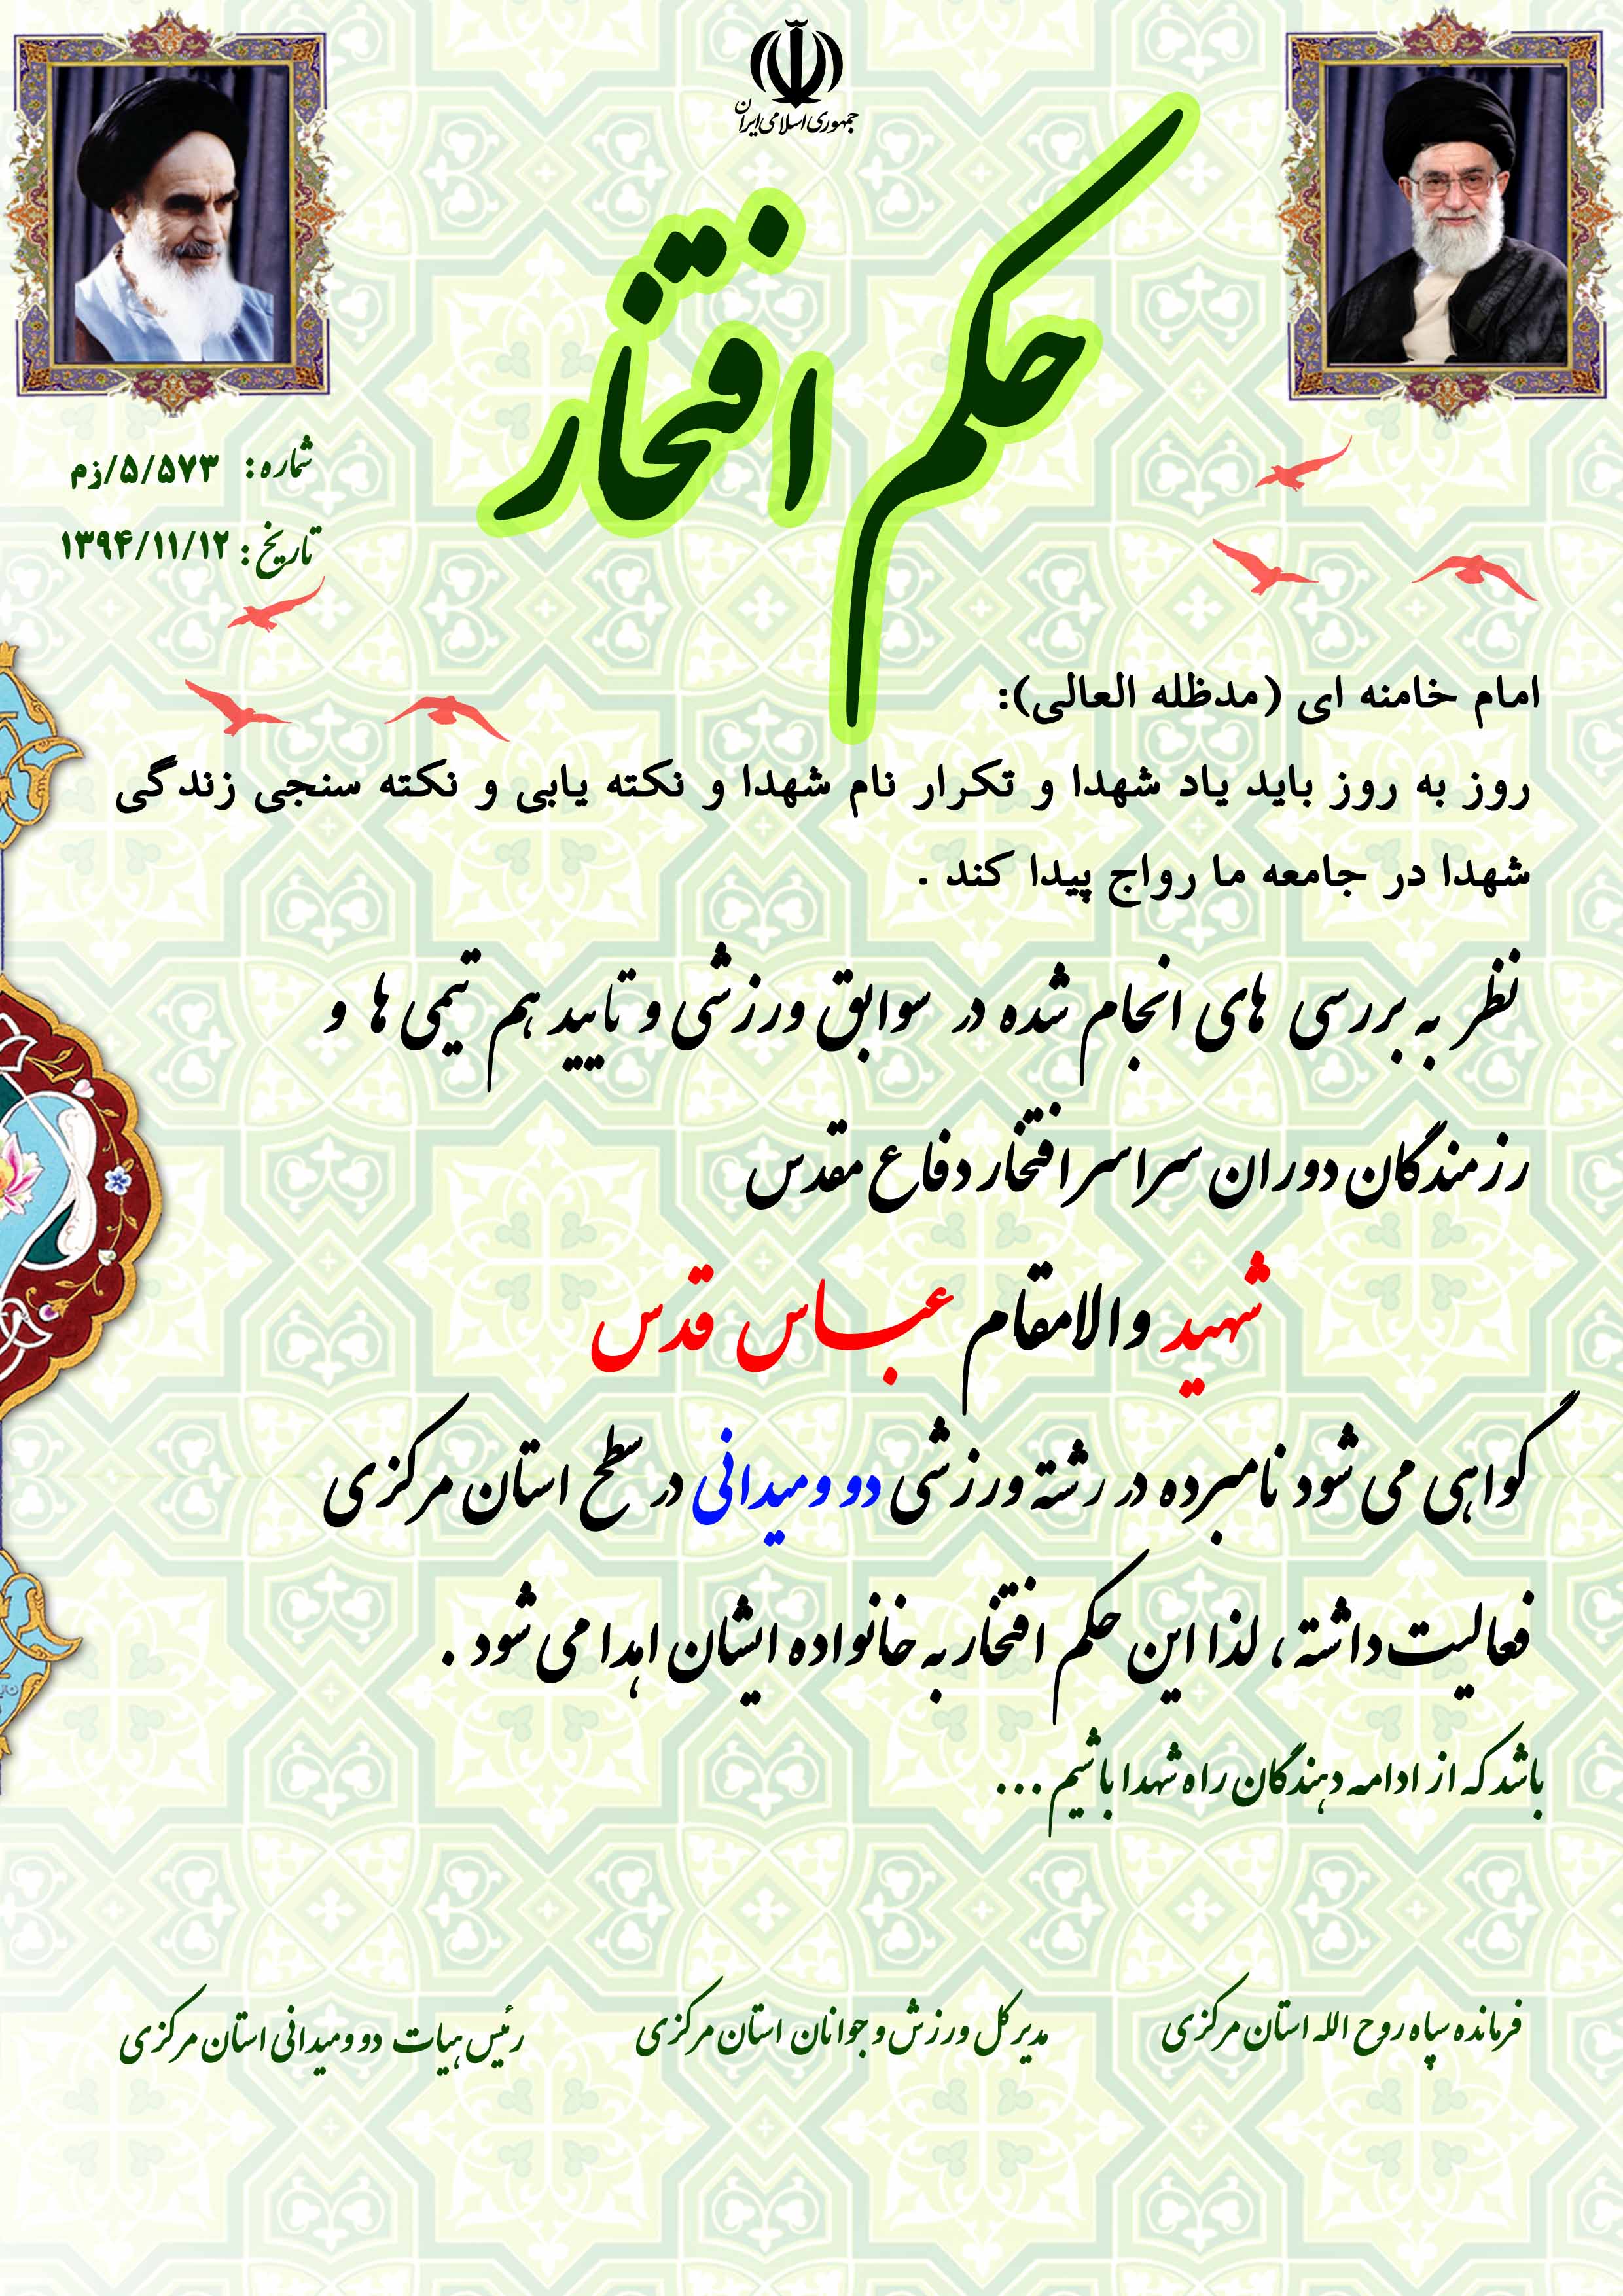 جمهوری اسلامی ایران
حکم افتخار
شماره: ۵/۵۷۳/زم
تاریخ: ۱۳۹۴/۱۱/۱۲
امام خامنه ای (مدظله العالی):
روز به روز باید یاد شهدا و تکرار نام شهدا و نکته یابی و نکته سنجی زندگی
شهدا در جامعه ما رواج پیدا کند .
نظر به بررسی های انجام شده در سوابق ورزشی و تایید هم تیمی ها و
رزمندگان دوران سراسر افتخار دفاع مقدس
شهید والامقام عباس قدس
گواهی می شود نامبرده در رشته ورزشی دو ومیدانی در سطح استان مرکزی
فعالیت داشته، لذا این حکم افتخار به خانواده ایشان اهدا می شود .
باشد که از ادامه دهندگان راه شهدا باشیم ...
فرمانده سپاه روح الله استان مرکزی
مدیر کل ورزش و جوانان استان مرکزی
رئیس هیات دو ومیدانی استان مرکزی